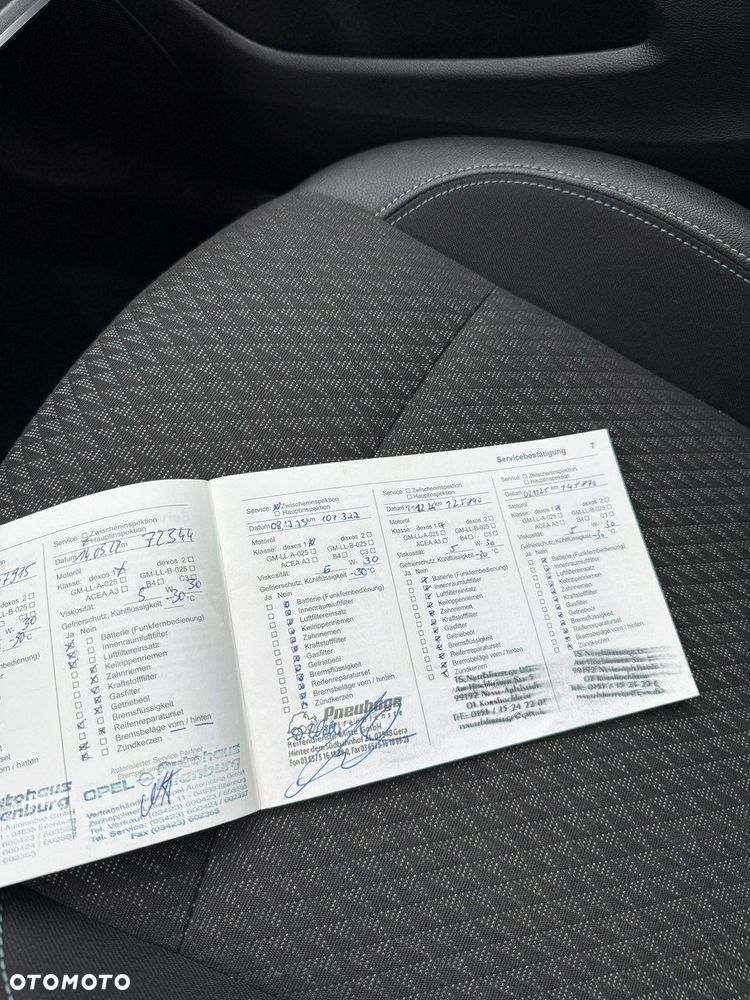 7
Servicebestätigung
57915
dexos 2
GM-LL-B-025
C3
W- 30
-30 °C
Autohaus
Eilenburg
Service: Zwischeninspektion
Hauptinspektion
Datum 14.05.22 km 72344
Motoröl
Klasse: dexos 1 dexos 2
GM-LL-A-025 GM-LL-B-025
ACEA A3 B4 C3
Viskosität: 5 W- 30
Gefrierschutz, Kühlflüssigkeit -30 °C
Ja Nein
Batterie (Funkfernbedienung)
Innenraumluftfilter
Luftfiltereinsatz
Keilrippenriemen
Zahnriemen
Kraftstofffilter
Gasfilter
Getriebeöl
Bremsflüssigkeit
Reifenreparaturset
Bremsbeläge vorn / hinten
Zündkerzen
Autorisierter Service Partner
OPEL Autohaus Eilenburg
Tel. Service: (03423) 600424 / 602397
Fax (03423) 602365
Service: Zwischeninspektion
Hauptinspektion
Datum 08.12.23 km 107 322
Motoröl
Klasse: dexos 1 dexos 2
GM-LL-A-025 GM-LL-B-025
ACEA A3 B4 C3
Viskosität: 5 W- 30
Gefrierschutz, Kühlflüssigkeit -30 °C
Ja Nein
Batterie (Funkfernbedienung)
Innenraumluftfilter
Luftfiltereinsatz
Keilrippenriemen
Zahnriemen
Kraftstofffilter
Gasfilter
Getriebeöl
Bremsflüssigkeit
Reifenreparaturset
Bremsbeläge vorn / hinten
Zündkerzen
Pneuhage
Hinter dem Südbahnhof 07548 Gera
Service: Zwischeninspektion
Hauptinspektion
Datum 12.24 km 125840
Motoröl
Klasse: dexos 1 dexos 2
GM-LL-A-025 GM-LL-B-025
ACEA A3 B4 C3
Viskosität: 5 W- 30
Gefrierschutz, Kühlflüssigkeit -30 °C
Ja Nein
Batterie (Funkfernbedienung)
Innenraumluftfilter
Luftfiltereinsatz
Keilrippenriemen
Zahnriemen
Kraftstofffilter
Gasfilter
Getriebeöl
Bremsflüssigkeit
Reifenreparaturset
Bremsbeläge vorn / hinten
Zündkerzen
99192 Nesse Apfelstädt
OT Kornhochheim
Service: Zwischeninspektion
Hauptinspektion
Datum km 145870
Motoröl
Klasse: dexos 1 dexos 2
GM-LL-A-025 GM-LL-B-025
ACEA A3 B4 C3
Viskosität: 5 W- 30
Gefrierschutz, Kühlflüssigkeit -30 °C
Ja Nein
Batterie (Funkfernbedienung)
Innenraumluftfilter
Luftfiltereinsatz
Keilrippenriemen
Zahnriemen
Kraftstofffilter
Gasfilter
Getriebeöl
Bremsflüssigkeit
Reifenreparaturset
Bremsbeläge vorn / hinten
Zündkerzen
OTOMOTO